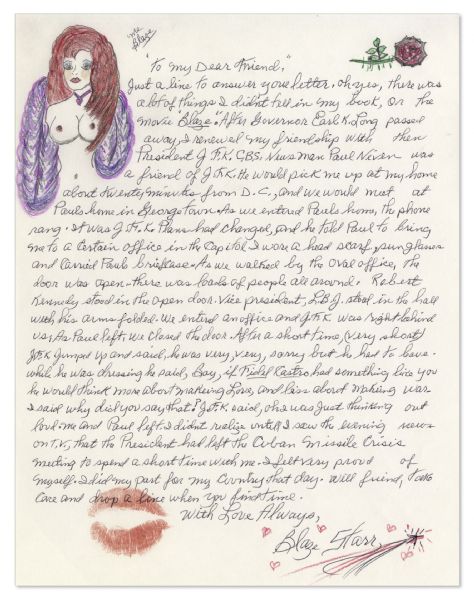 me
Blaze
"To my Dear Friend,"
Just a line to answer your letter. oh yes, there was
a lot of things I didn't tell in my book, or the
movie Blaze". After Governor Earl K. Long passed
away, I renewed my friendship with then
President J.F.K. CBS. News man Paul Niven was
a friend of J.F.K. He would pick me up at my home
about twenty minutes from D.C., and we would meet at
Pauls home in Georgetown. As we entered Pauls home, the phone
rang. It was J.F.K. Plans had changed, and he told Paul to bring
me to a certain office in the Capitol. I wore a head scarf, sunglasses
and carried Pauls briefcase. As we walked by the oval office, the
door was open. there was loads of people all around. Robert
Kennedy stood in the open door. Vice president, L.B.J. stood in the hall
with his arms folded. We entered an office and J.F.K. was right behind
us. As Paul left, we closed the door. After a short time, (very short)
J.F.K jumped up and said, he was very, very, sorry but he had to leave.
while he was dressing he said, Gay, if Fidel Castro had something like you
he would think more about makeing Love, and less about making war
I said why did you say that? J.F.K. said, oh I was just thinking out
loud. me and Paul left. I didnt realize until I saw the evening news
on T.V., that the President had left the Cuban Missile Crisis
meeting to spend a short time with me. I felt very proud of
myself. I did my part for my Country that day. Well friend, take
care and drop a line when you find time.
With Love Always,
Blaze Starr